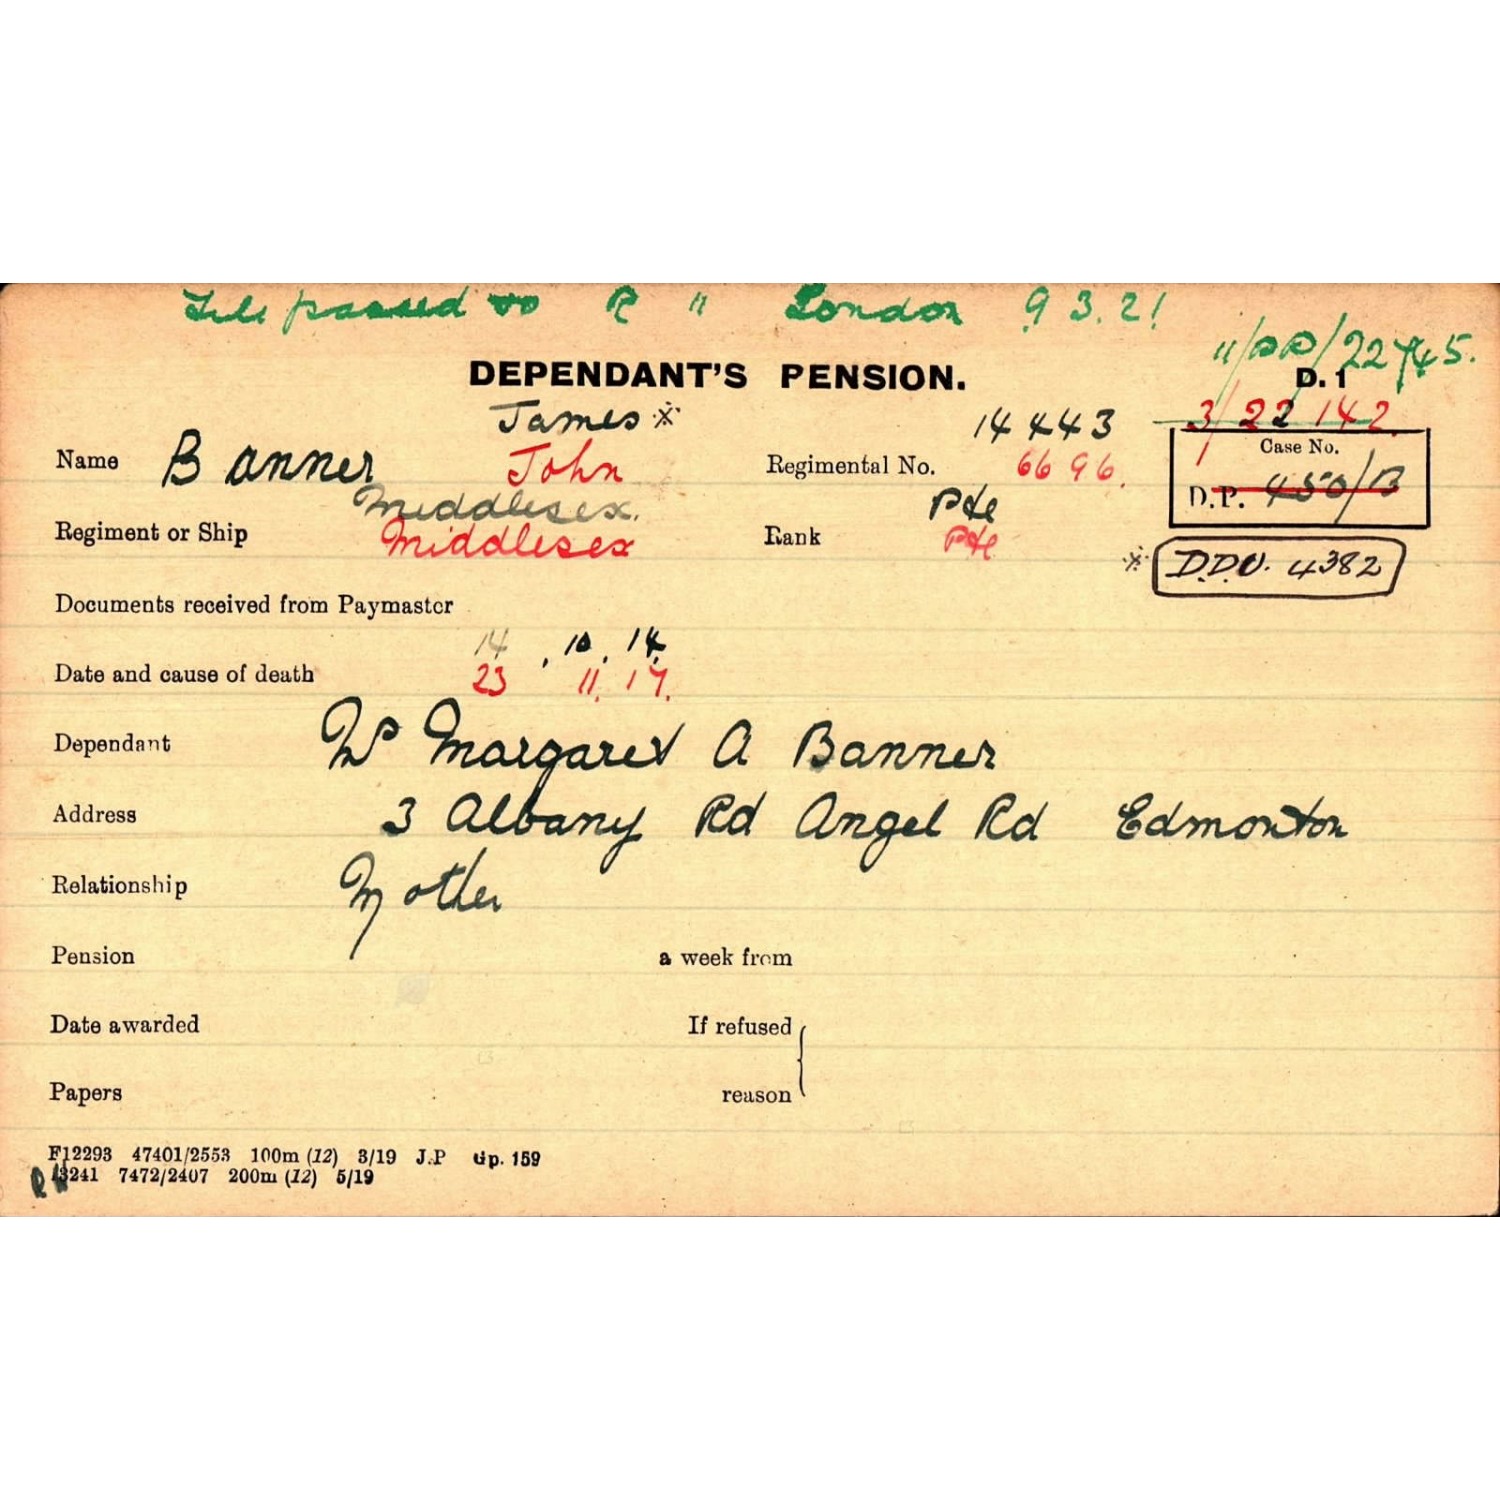 File passed to R 11 London 9 3.21
11/PP/22745.
DEPENDANT'S PENSION.
D. 1
James ※
14443
3/22142.
Name Banner John
Regimental No. 6696.
Case No.
D.P. 450/B
Middlesex.
Pte
Regiment or Ship Middlesex
Rank Pte
※ D.D.U. 4382
Documents received from Paymaster
14. 10. 14.
Date and cause of death 23 11. 17.
Dependant Mrs Margaret A Banner
Address 3 Albany Rd Angel Rd Edmonton
Relationship Mother
Pension a week from
Date awarded If refused
Papers reason
F12293 47401/2553 100m (12) 3/19 J.P Gp. 159
3241 7472/2407 200m (12) 5/19